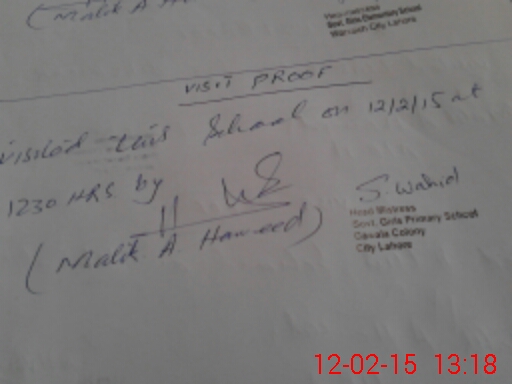 (Malik A
Govt. Girls Elementary School
City Lahore
VISIT PROOF
Visited this School on 12/2/15 at
1230 HRS by
S. Wahid
(Malik A Hameed)
Head Mistress
Govt. Girls Primary School
Gawala Colony
City Lahore
12-02-15 13:18